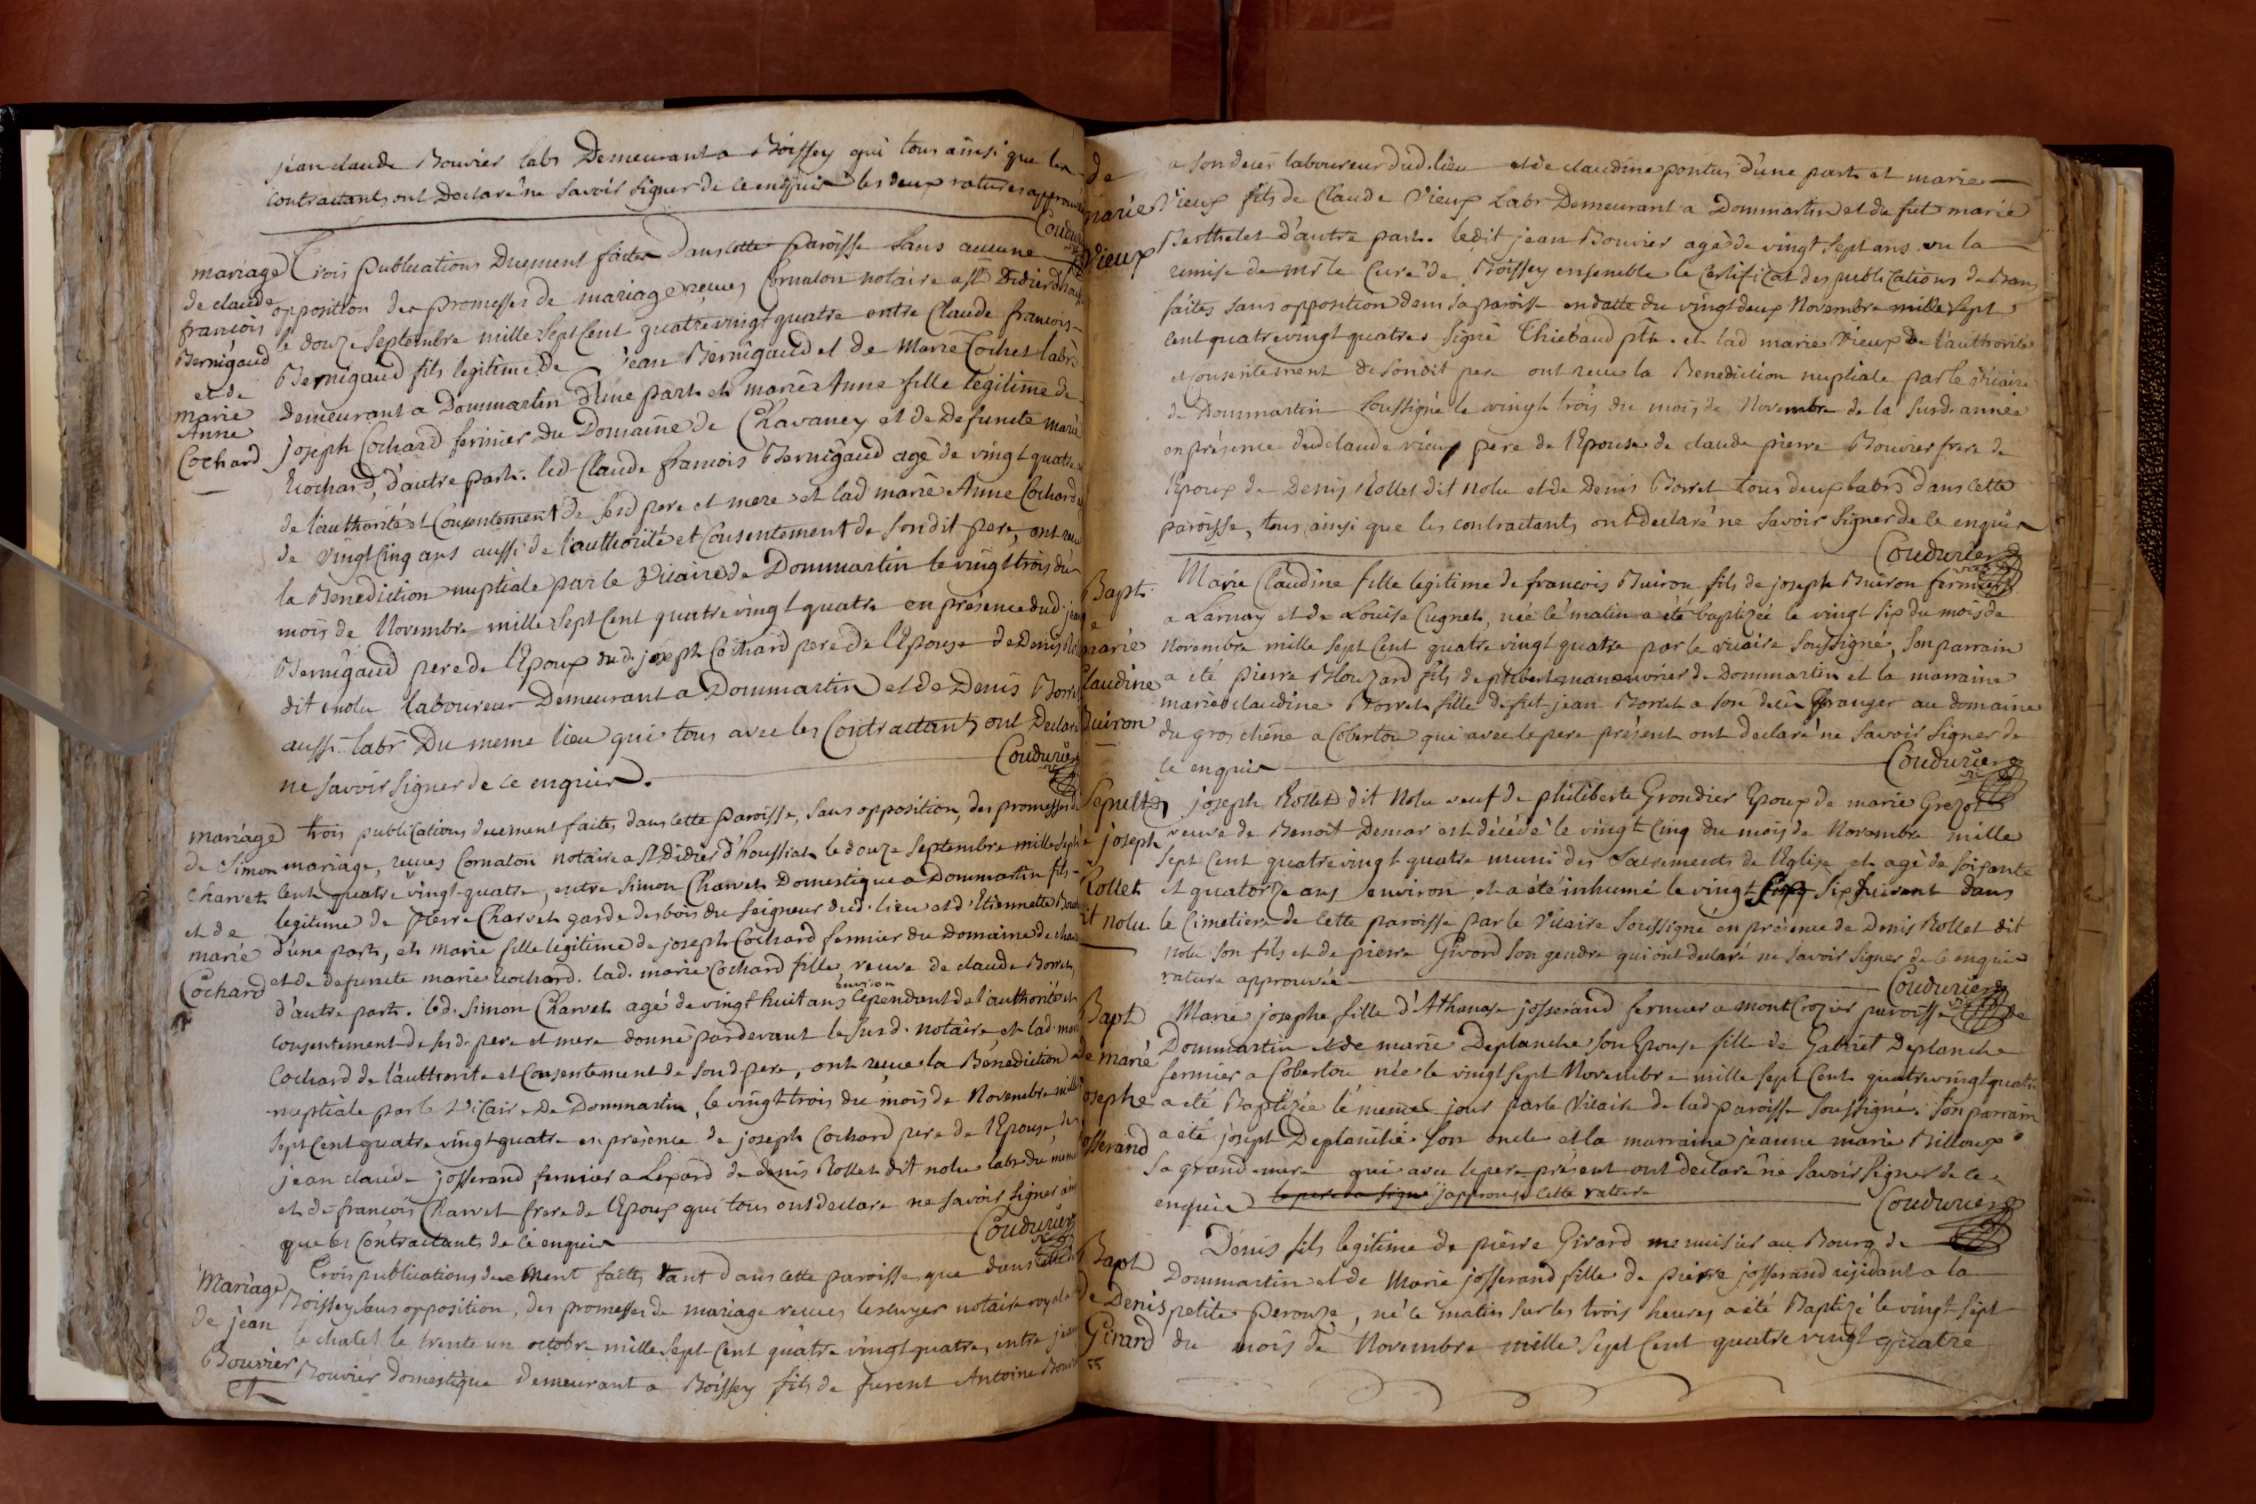 jean claude Bouvier labr Demeurant a Boissey qui tous ainsi que les
contractants ont Declaré ne savoir signer de ce enquis les deux ratures approuvés
Coudurier
mariage
de claude
francois
Bernigaud
et de
marie
Anne
Cochard
Trois publications Duement faites Dans cette paroisse sans aucune
opposition des promesses de mariage reçues Cornaton notaire a St Didier
le douze septembre mille sept Cent quatre vingt quatre entre Claude francois
Bernigaud fils legitime de jean Bernigaud et de Marie Cochet labrs
demeurant a Dommartin d'une part et marie Anne fille legitime de
joseph Cochard fermier Du Domaine de Chavaney et de Defuncte marie
Cochard, d'autre part. led Claude francois Bernigaud agé de vingt quatre
de l'authorité et Consentement de sesd pere et mere et lad marie Anne Cochard
de vingt Cinq ans aussi de l'authorité et Consentement de sondit pere, ont reçu
la Benediction nuptiale par le Vicaire de Dommartin le vingt trois du
mois de Novembre mille sept Cent quatre vingt quatre en présence dud. jean
Bernigaud pere de l'Epoux dud. joseph Cochard pere de l'Epouse de Denis
dit nolu laboureur Demeurant a Dommartin et de Denis Borret
aussi labr Du meme lieu qui tous avec les Contractants ont Declaré
ne savoir signer de ce enquis.
Coudurier
mariage
de Simon
Charvet
et de
marie
Cochard
trois publications duement faites dans cette paroisse, sans opposition, des promesses de
mariage, reçues Cornaton notaire a St Didier d'houssiat le douze septembre mille sept
Cent quatre vingt-quatre, entre simon Charvet Domestique a Dommartin fils
legitime de pierre Charvet garde des bois du seigneur dud. lieu et d'Etiennette
d'une part, et marie fille legitime de joseph Cochard fermier du Domaine de
et de defuncte marie Cochard. lad. marie Cochard fille, veuve de claude Borret,
d'autre part. led. simon Charvet agé de vingt huit ans environ Cependant de l'authorité et
consentement de sesd. pere et mere donné pardevant le susd. notaire, et lad. marie
Cochard de l'authorité et Consentement de sond pere, ont reçue la Bénediction
nuptiale par le Vicaire De Dommartin, le vingt trois du mois de Novembre mille
sept Cent quatre vingt quatre en présence de joseph Cochard pere de l'Epouse, de
jean claude josserand fermier a Lepard de denis Rollet dit nolu labr du meme
et de françois Charvet frere de l'Epoux qui tous ont declaré ne savoir signer ainsi
que les Contractants de ce enquis
Coudurier
Mariage
de jean
Bouvier
et
Trois publications duement faites tant dans cette paroisse que dans celle de
Boissey sans opposition, des promesses de mariage reçues notaire royal a
le chatel le trente un octobre mille sept Cent quatre vingt quatre, entre jean
Bouvier domestique demeurant a Boissey fils de furent Antoine
de
marie
Vieux
a son decés laboureur dud. lieu et de claudine pontus d'une part et marie
Vieux fils de Claude Vieux Labr Demeurant a Dommartin et de fut marie
Berthelet d'autre part. ledit jean Bouvier agé de vingt sept ans vu la
remise de mr le Curé de Boissey ensemble le Certificat des publications de Bans
faites sans opposition dans sa paroisse en datte du vingt deux Novembre mille sept
cent quatre vingt quatre signé Thiebaud ptre. et lad marie Vieux de l'authorité
et consentement de sondit pere ont reçue la Benediction nuptiale par le Vicaire
de Dommartin soussigné le vingt trois du mois de Novembre de la susd. année
en présence dud claude vieux pere de l'Epouse de claude pierre Bouvier frere de
l'Epoux de Denis Rollet dit nolu et de Denis Borret tous deux labrs dans cette
paroisse, tous ainsi que les contractants ont declaré ne savoir signer de ce enquis
Coudurier
Bapt.
de
marie
Claudine
Buiron
Marie Claudine fille legitime de francois Buiron fils de joseph Buiron fermier
a Larnay et de Louise Cugnet, née le matin a été baptizée le vingt six du mois de
Novembre mille sept Cent quatre vingt quatre par le vicaire soussigné, son parrain
a été pierre Blouzard fils de philbert manouvrier de Dommartin et la marraine
marie claudine Borret fille de fut jean Borret a son décés granger au domaine
du gros chêne a Cobertou qui avec le pere présent ont declaré ne savoir signer de
ce enquis
Coudurier
Sepulte
de joseph
Rollet
dit nolu
joseph Rollet dit Nolu veuf de philiberte Grondier Epoux de marie Grezot
veuve de Benoit Demar est décédé le vingt Cinq du mois de Novembre mille
sept Cent quatre vingt quatre muni des Sacrements de l'Eglise et agé de soixante
et quatorze ans environ et a été inhumé le vingt six suivant dans
le Cimetiere de cette paroisse par le Vicaire soussigné en présence de Denis Rollet dit
nolu son fils et de pierre Givord son gendre qui ont declaré ne savoir signer de ce enquis
rature approuvée
Coudurier
Bapt
de marie
josephe
josserand
Marie josephe fille d'Athanase josserand fermier a mont Crozier paroisse de
Dommartin et de marie Deplanche son Epouse fille de Gabriel Deplanche
fermier a Cobertou née le vingt sept Novembre mille sept Cent quatre vingt quatre
a été Baptizée le même jour par le Vicaire de lad paroisse soussigné. son parrain
a été joseph Deplanche son oncle et la marraine jeanne marie Billoux
sa grand-mere qui avec le pere présent ont declaré ne savoir signer de ce
enquis le pere a signé j'approuve cette rature
Coudurier
Bapt
de Denis
Girard
Denis fils legitime de pierre Girard menuisier au Bourg de
Dommartin et de Marie josserand fille de pierre josserand résidant a la
petite perouze, né le matin sur les trois heures a été Baptizé le vingt-sept
du mois de Novembre mille sept Cent quatre vingt quatre